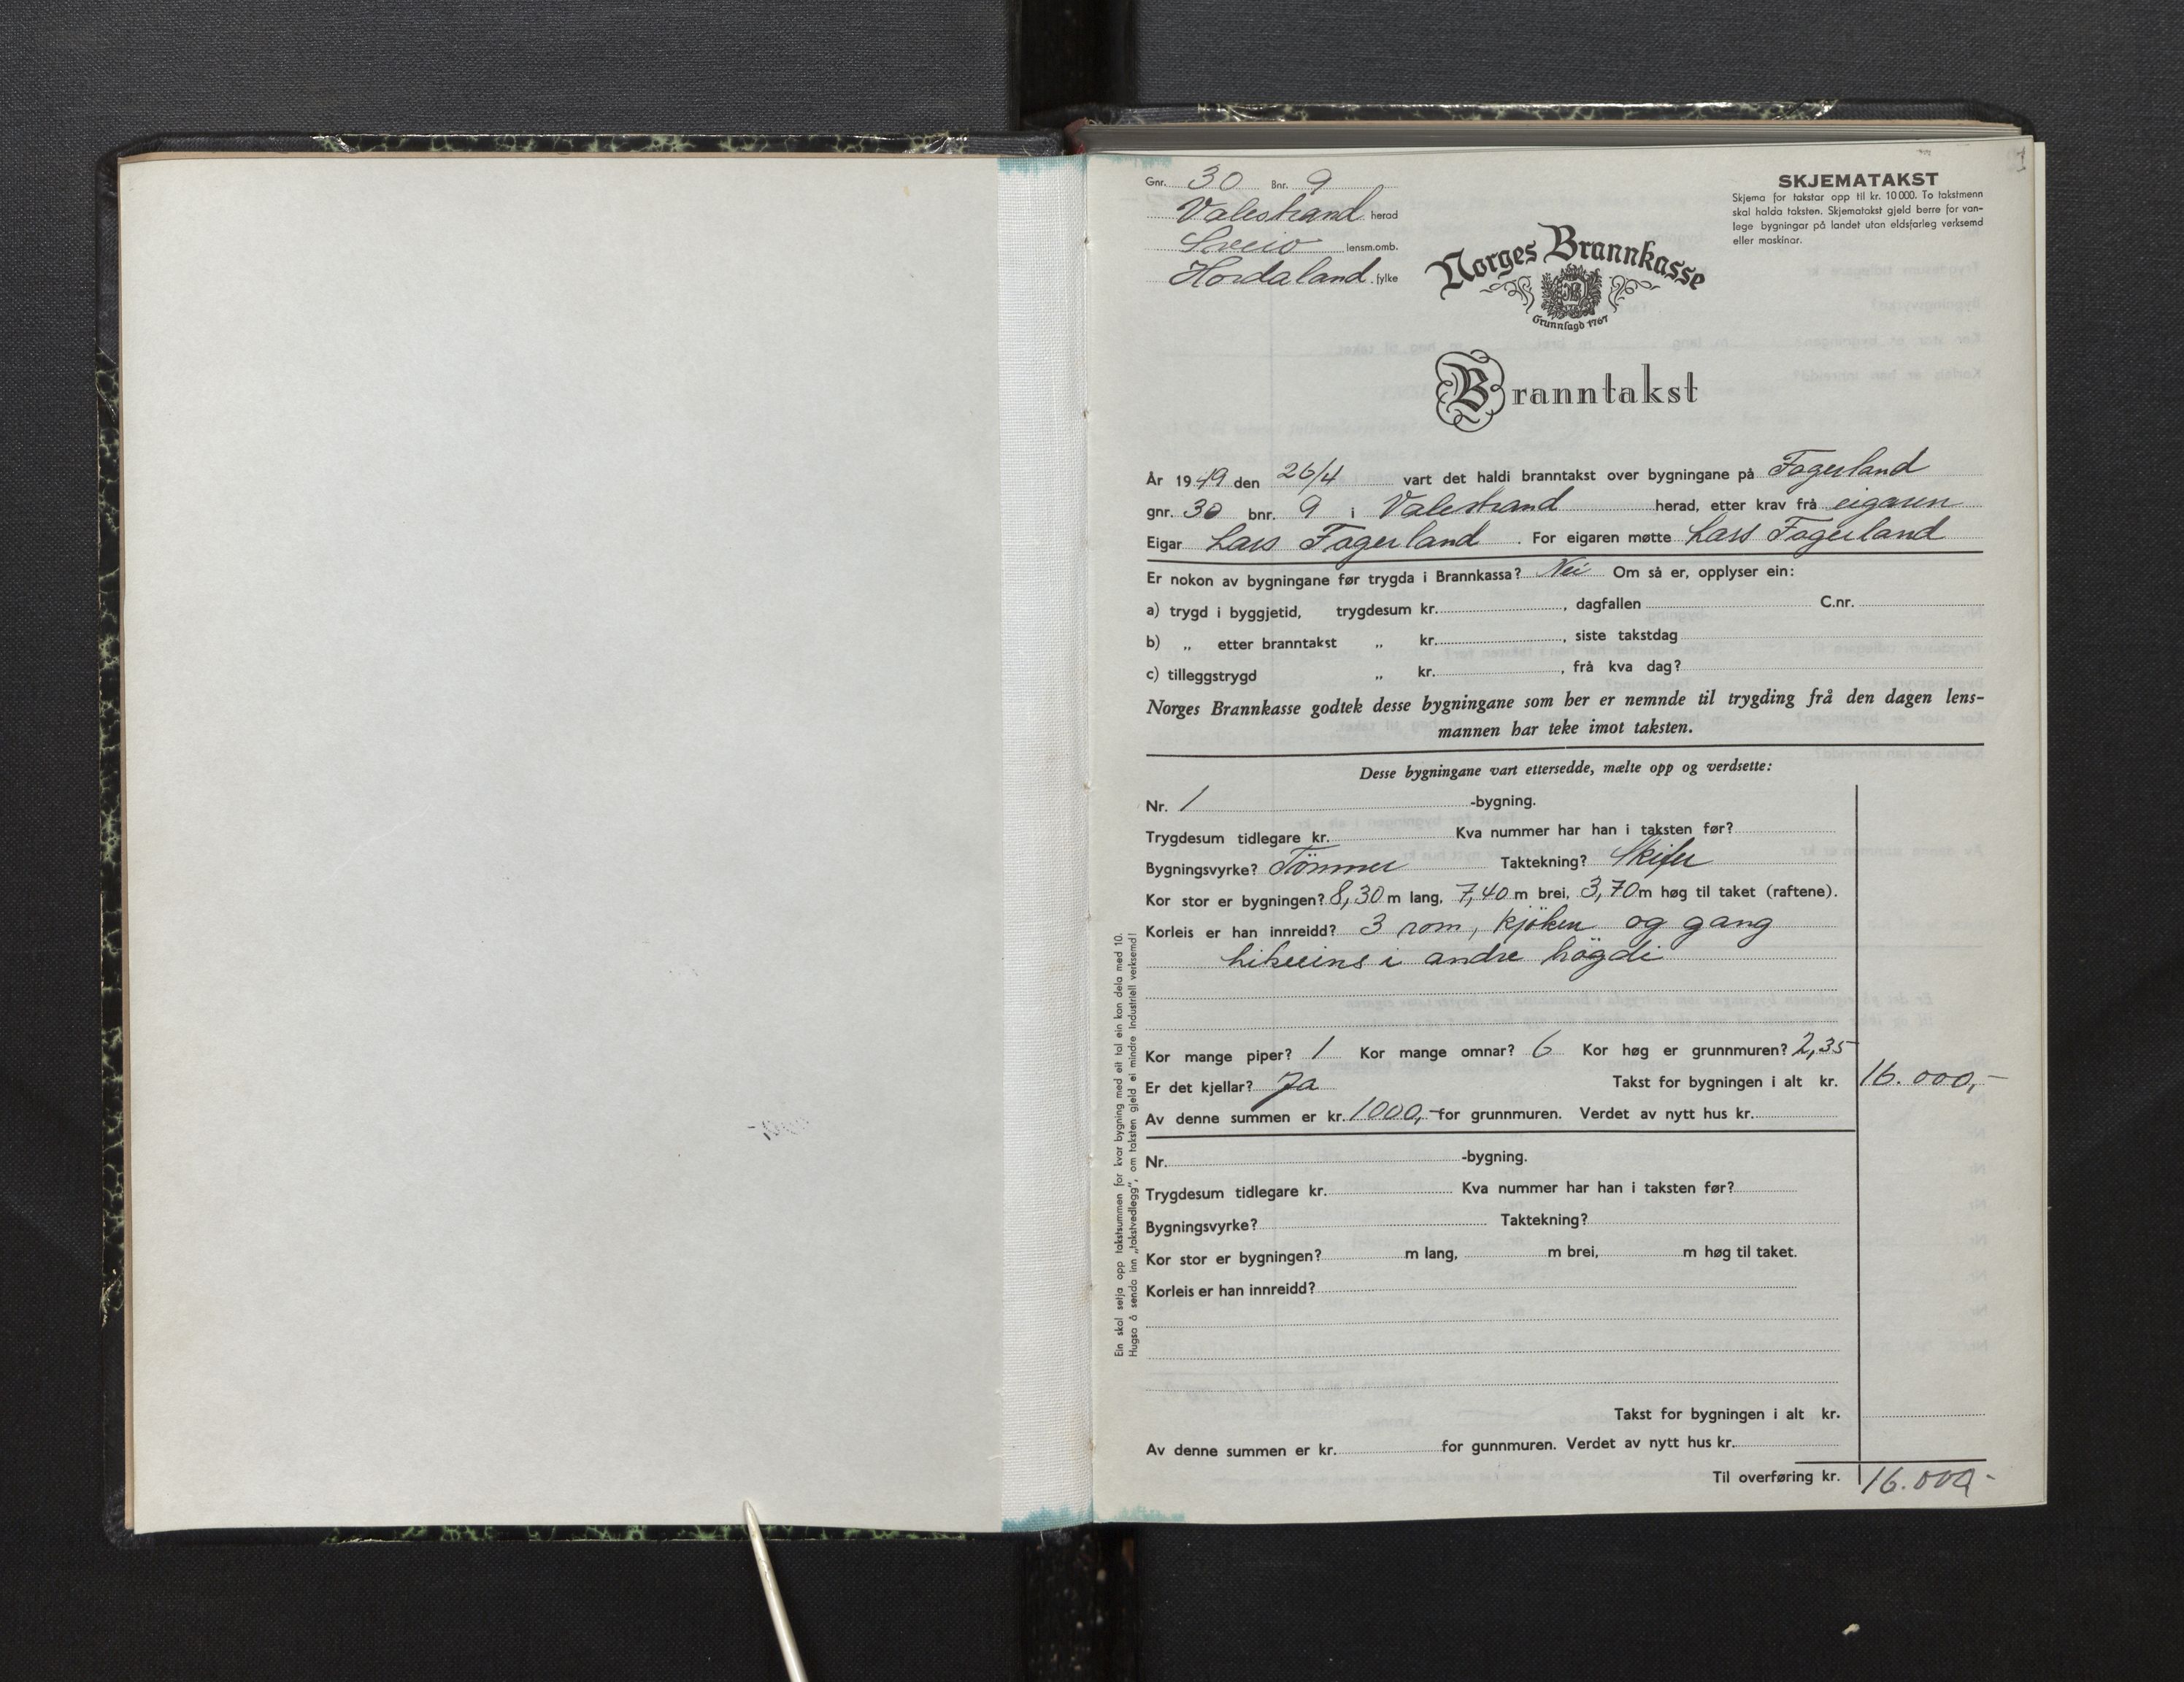 Gnr. 30 Bnr. 9
Valestrand herad
Sveio lensm.omb.
Hordaland fylke
SKJEMATAKST
Skjema for takstar opp til kr. 10 000. To takstmenn
skal halda taksten. Skjematakst gjeld berre for van-
lege bygningar på landet utan eldsfarleg verksemd
eller maskinar.
Norges Brannkasse
Grunnlagd 1767
Branntakst
År 1949 den 26/4 vart det haldi branntakst over bygningane på Fagerland
gnr. 30 bnr. 9 i Valestrand herad, etter krav frå eigaren
Eigar Lars Fagerland. For eigaren møtte Lars Fagerland
Er nokon av bygningane før trygda i Brannkassa? Nei Om så er, opplyser ein:
a) trygd i byggjetid, trygdesum kr. , dagfallen C.nr.
b) „ etter branntakst „ kr. , siste takstdag
c) tilleggstrygd „ kr. , frå kva dag?
Norges Brannkasse godtek desse bygningane som her er nemnde til trygding frå den dagen lens-
mannen har teke imot taksten.
Desse bygningane vart ettersedde, mælte opp og verdsette:
Nr. 1 -bygning.
Trygdesum tidlegare kr. Kva nummer har han i taksten før?
Bygningsvyrke? Tömmer Taktekning? Skifer
Kor stor er bygningen? 8,30 m lang, 7,40 m brei, 3,70 m høg til taket (raftene).
Korleis er han innreidd? 3 rom, kjöken og gang
likeeins i andre högdi
Kor mange piper? 1 Kor mange omnar? 6 Kor høg er grunnmuren? 2,35
Er det kjellar? Ja Takst for bygningen i alt kr. 16.000,-
Av denne summen er kr. 1000,- for grunnmuren. Verdet av nytt hus kr.
Nr. -bygning.
Trygdesum tidlegare kr. Kva nummer har han i taksten før?
Bygningsvyrke? Taktekning?
Kor stor er bygningen? m lang, m brei, m høg til taket.
Korleis er han innreidd?
Takst for bygningen i alt kr.
Av denne summen er kr. for gunnmuren. Verdet av nytt hus kr.
Til overføring kr. 16.000-
Ein skal setja opp takstsummen for kvar bygning med eit tal ein kan dela med 10.
Hugsa å senda inn „takstvedlegg", om taksten gjeld ei mindre industriell verksemd!